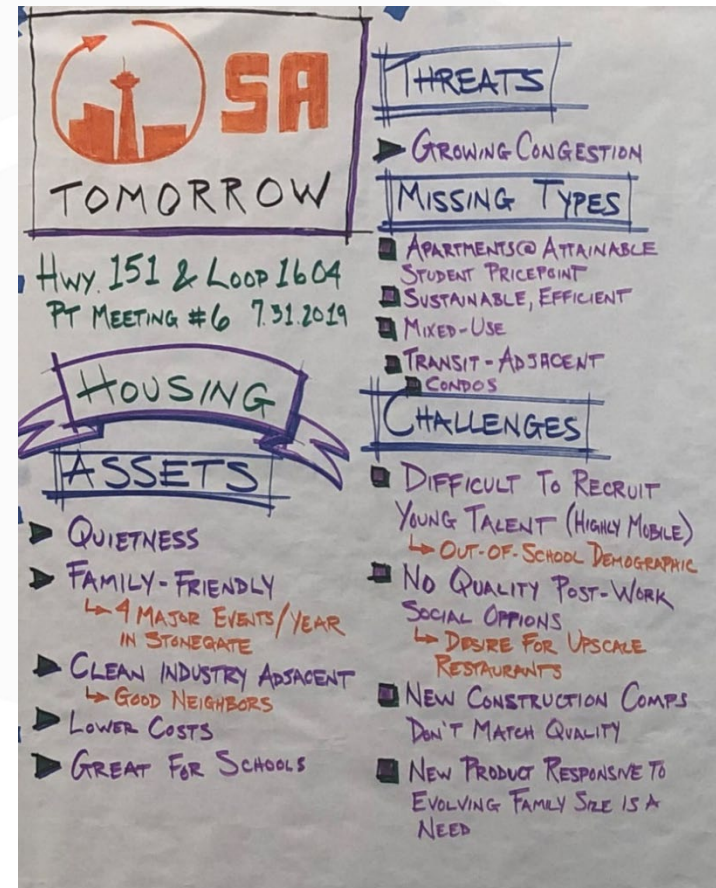 SA
TOMORROW
HWY. 151 & LOOP 1604
PT MEETING #6 7.31.2019
HOUSING
ASSETS
QUIETNESS
FAMILY-FRIENDLY
4 MAJOR EVENTS/YEAR
IN STONEGATE
CLEAN INDUSTRY ADJACENT
GOOD NEIGHBORS
LOWER COSTS
GREAT FOR SCHOOLS
THREATS
GROWING CONGESTION
MISSING TYPES
APARTMENTS @ ATTAINABLE
STUDENT PRICEPOINT
SUSTAINABLE, EFFICIENT
MIXED-USE
TRANSIT-ADJACENT
CONDOS
CHALLENGES
DIFFICULT TO RECRUIT
YOUNG TALENT (HIGHLY MOBILE)
OUT-OF-SCHOOL DEMOGRAPHIC
NO QUALITY POST-WORK
SOCIAL OPPIONS
DESIRE FOR UPSCALE
RESTAURANTS
NEW CONSTRUCTION COMPS
DON'T MATCH QUALITY
NEW PRODUCT RESPONSIVE TO
EVOLVING FAMILY SIZE IS A
NEED